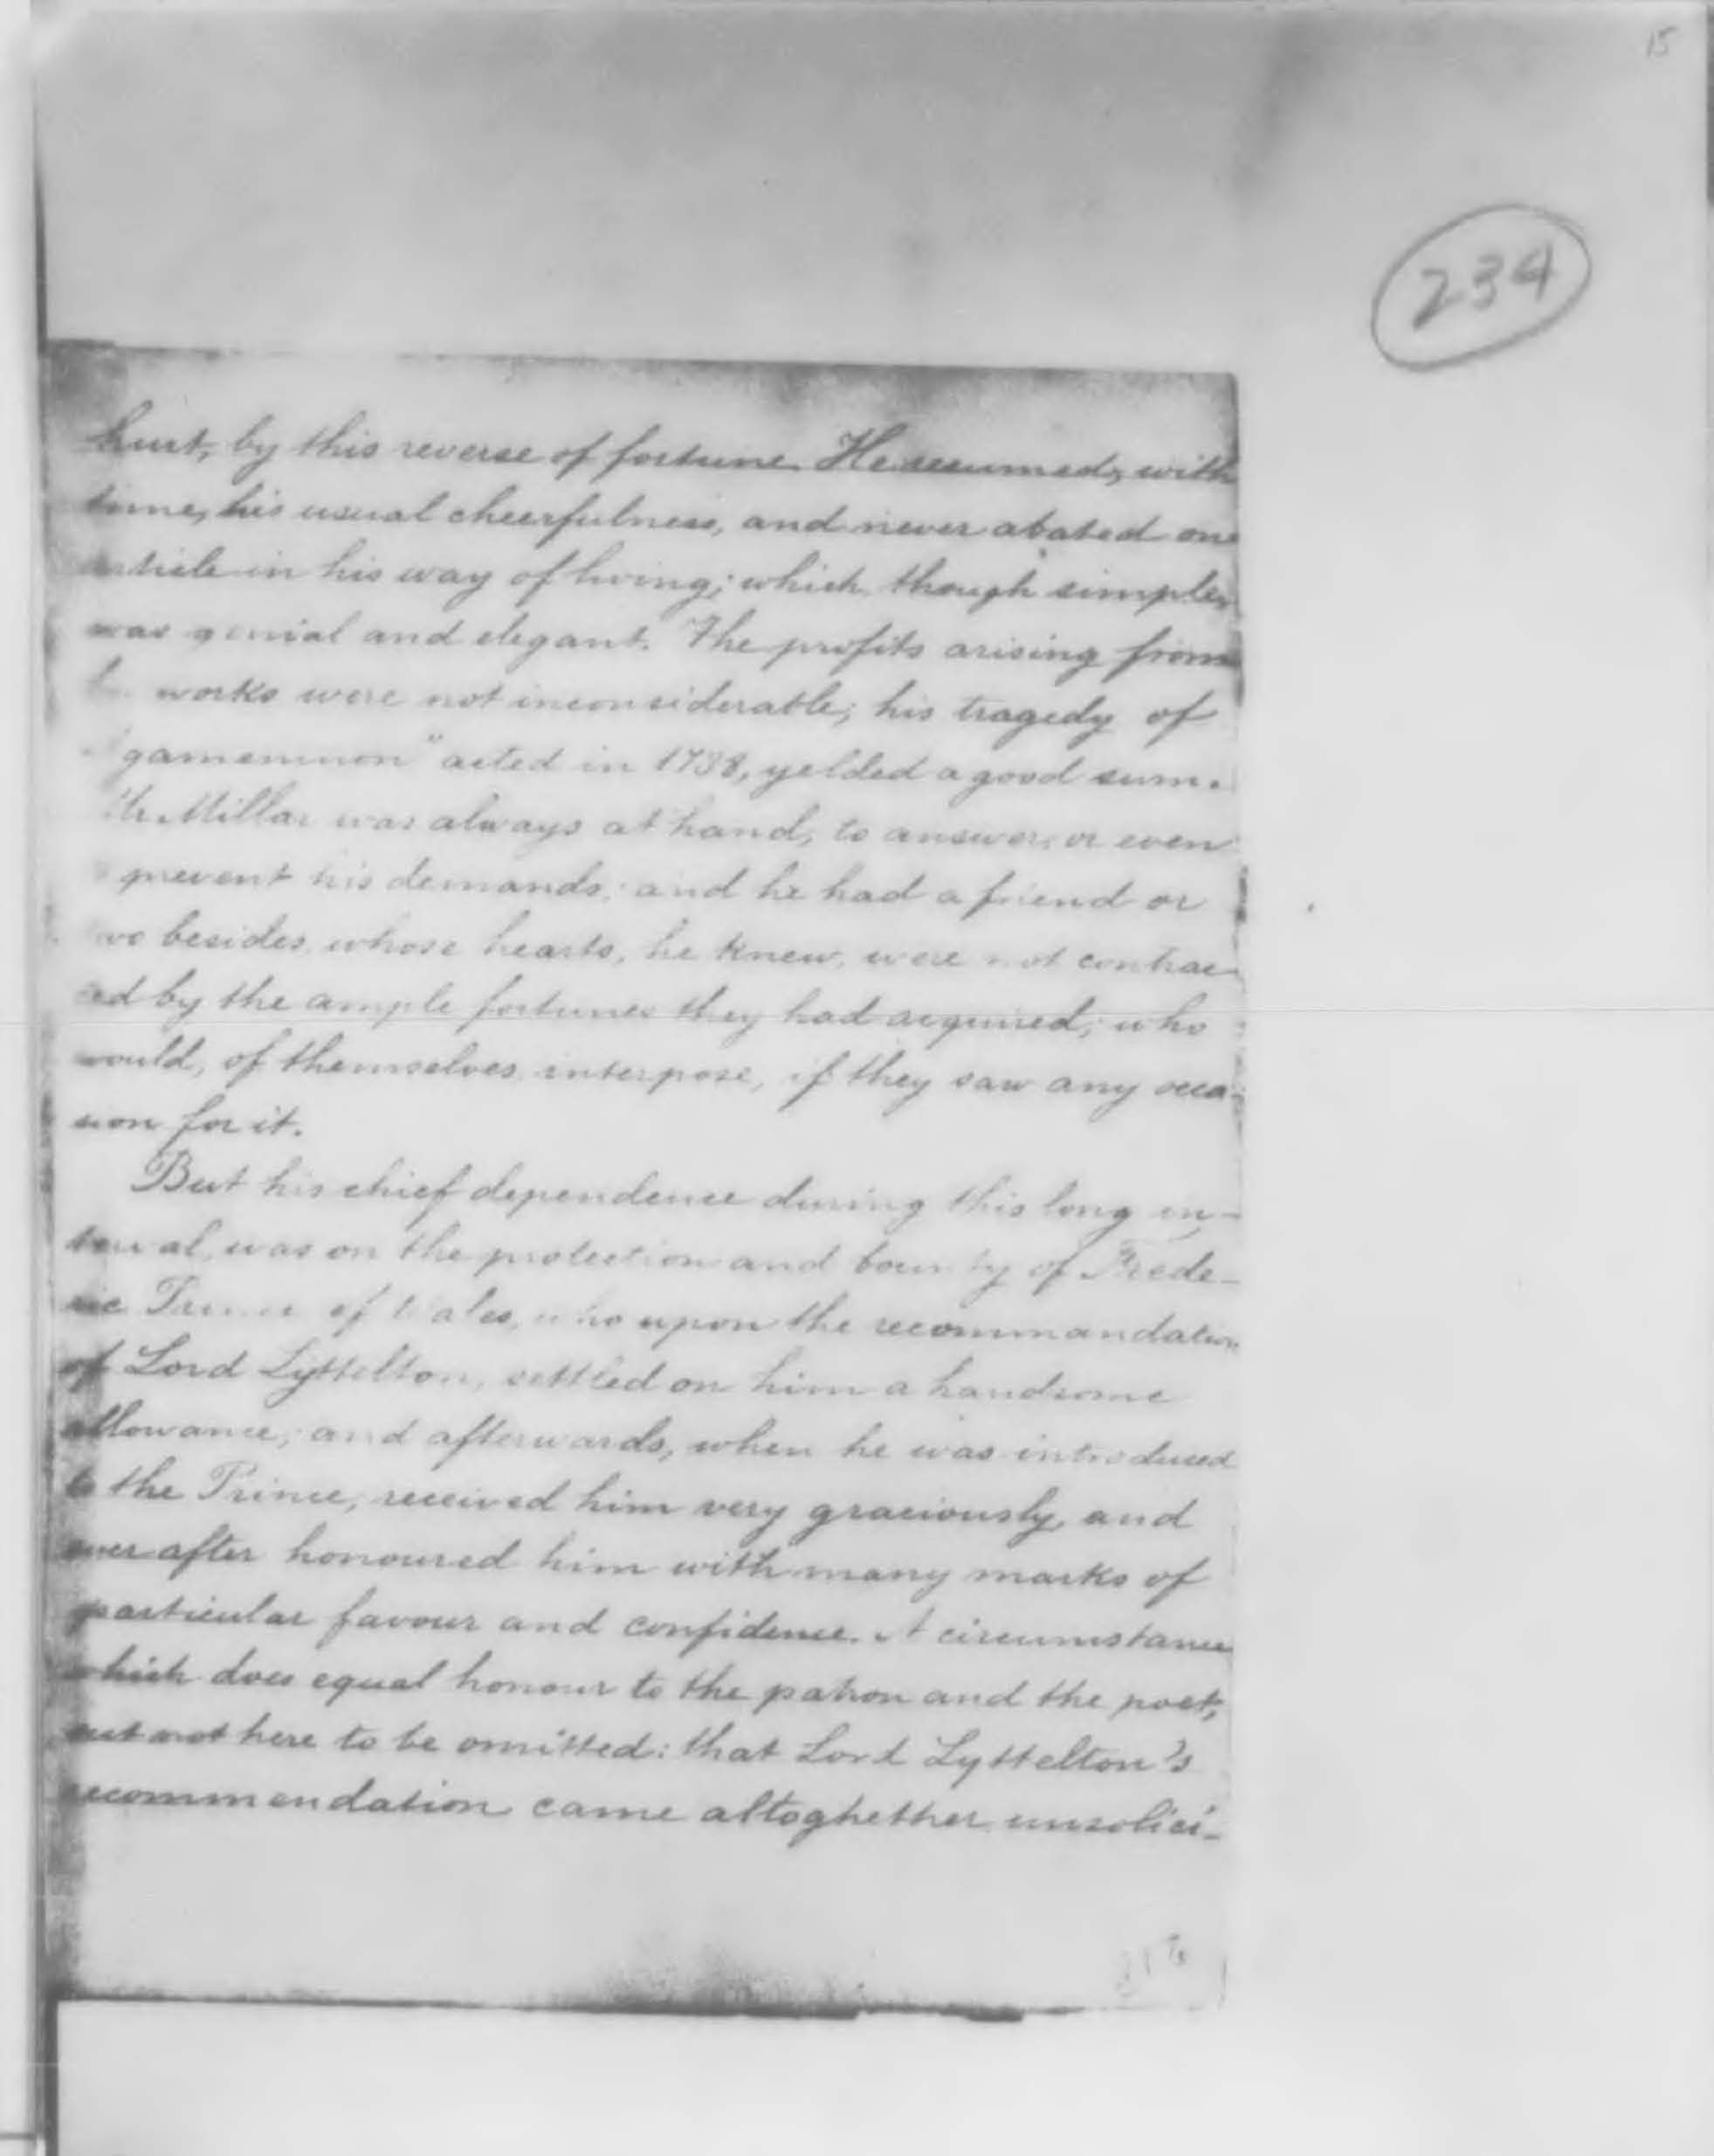 15
234
hurt, by this reverse of fortune. He resumed, with
time, his usual cheerfulness, and never abated one
article in his way of living; which, though simple,
was genial and elegant. The profits arising from
works were not inconsiderable; his tragedy of
gamemnon" acted in 1738, yelded a good sum.
Mr. Millar was always at hand, to answer, or even
prevent his demands; and he had a friend or
two besides, whose hearts, he knew, were not contrac-
ted by the ample fortunes they had acquired; who
would, of themselves interpose, if they saw any occa-
sion for it.
But his chief dependence during this long in-
terval, was on the protection and bounty of Frede-
ric Prince of Wales, who upon the recommandation
of Lord Lyttelton, settled on him a handsome
allowance; and afterwards, when he was introduced
to the Prince, received him very graciously, and
ever after honoured him with many marks of
particular favour and confidence. A circumstance
which does equal honour to the patron and the poet,
out not here to be omitted: that Lord Lyttelton's
recommendation came altoghether unsolici-